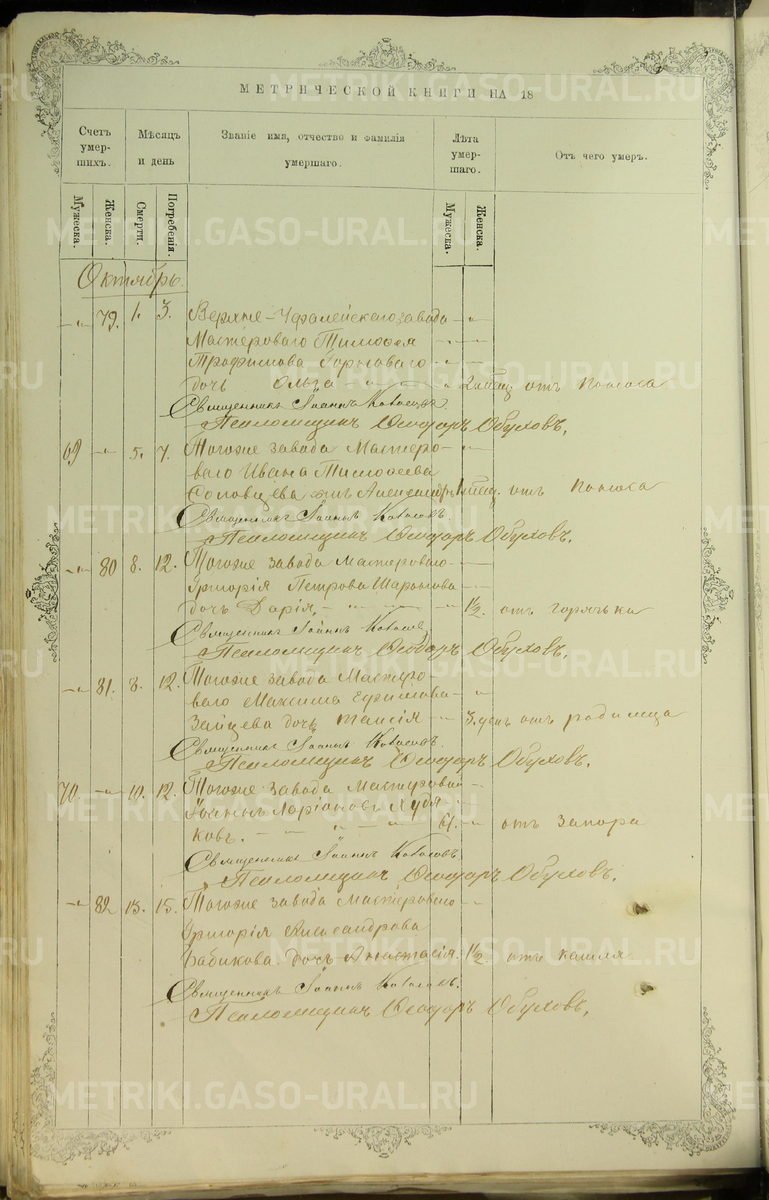 МЕТРИЧЕСКОЙ КНИГИ НА 18
Счетъ умер-шихъ.
Мѣсяцъ и день
Званіе имя, отчество и фамилія умершаго.
Лѣта умер-шаго.
Отъ чего умеръ.
Мужеска.
Женска.
Смерти.
Погребенія.
Мужеска.
Женска.
Октябрь.
79. 1. 3. Верхне-Уфалейскаго завода
Мастероваго Тимофея
Трофимова
дочь Ольга 2 отъ поноса
Священникъ Іоаннъ
Псаломщикъ Ѳеодоръ Обуховъ.
69 5. 7. Тогоже завода Мастеро-
ваго Ивана Тимофеева
отъ поноса
Священникъ Іоаннъ
Псаломщикъ Ѳеодоръ Обуховъ.
80 8. 12. Тогоже завода Мастероваго
Григорія Петрова
дочь Дарія 1½. отъ горячки
Священникъ Іоаннъ
Псаломщикъ Ѳеодоръ Обуховъ.
81. 8. 12. Тогоже завода Мастеро-
ваго Максима Ефимова
Зайцева дочь Таисія 3. день отъ родимца
Священникъ Іоаннъ
Псаломщикъ Ѳеодоръ Обуховъ.
70. 10. 12. Тогоже завода Мастеровой
Іоаннъ Ларіоновъ Худя
ковъ. 61. отъ запора
Священникъ Іоаннъ
Псаломщикъ Ѳеодоръ Обуховъ.
82 13. 15. Тогоже завода Мастероваго
Григорія Александрова
Бабикова дочь Анастасія. 1½ отъ кашля
Священникъ Іоаннъ
Псаломщикъ Ѳеодоръ Обуховъ.
METRIKI.GASO-URAL.RU